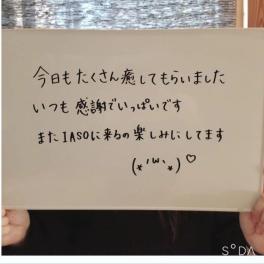 今日もたくさん癒してもらいました
いつも感謝でいっぱいです
またIASOに来るの楽しみにしてます
(*'ω'*)♡
SODA